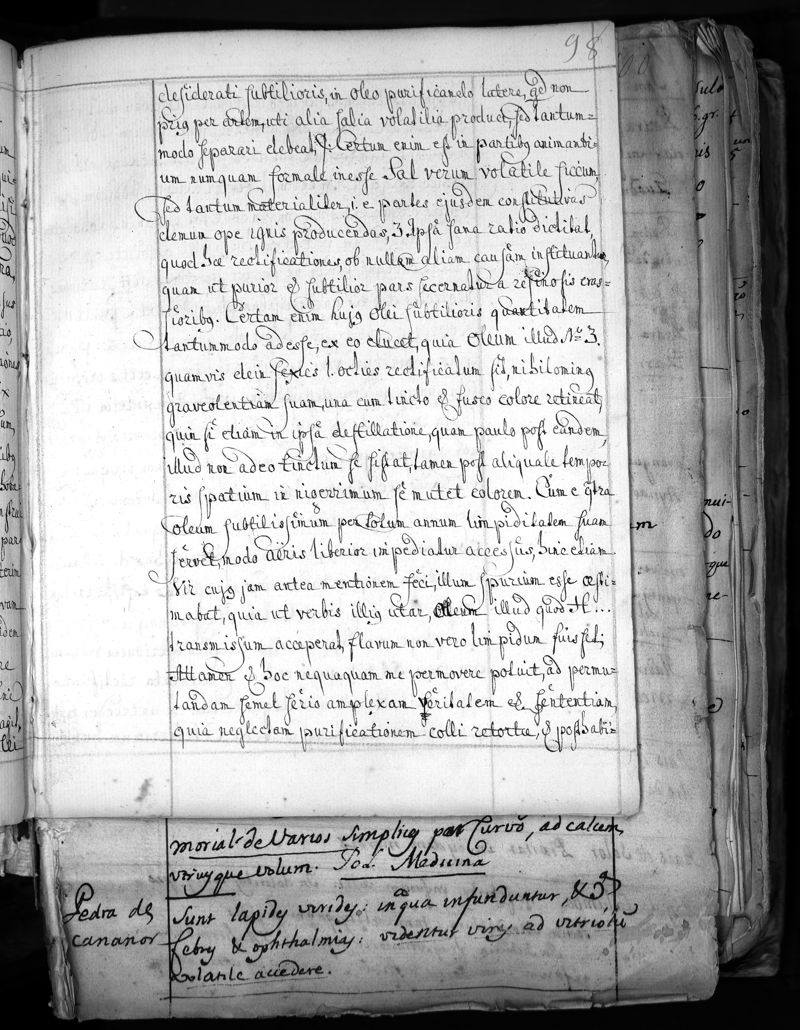 98
desiderati subtilioris, in oleo purificando latere, qd non
priq per artem, uti alia salia volatilia product, sed tantum=
modo separari debeat, 2. Certum enim est in partibq animanti-
um numquam formale inesse Sal verum volatile siccum,
sed tantum materialiter, i. e. partes ejusdem constitutivas
demum ope ignis producendas, 3. Ipsâ sana ratio dictitat,
quod hæ rectificationes, ob nullam aliam causam instituantur,
quam ut purior & subtilior pars secernatur a resinosis cras=
sioribq. Certam enim hujq Olei subtilioris quantitatem
tantummodo adesse, ex eo elucet, quia Oleum illud No. 3.
quamvis dein sexies l. octies rectificatum sit, nihilominq
graveolentiam suam, una cum tincto & fusco colore retineat,
quin si etiam in ipsâ destillatione, quam paulo post eandem,
illud non adeo tinctum se sistat, tamen post aliquale tempo-
ris spatium in nigerrimum se mutet colorem. Cum e qtra
oleum subtilissimum per totum annum limpiditatem suam
servet, modo aëris liberior impediatur accessus, hinc etiam
Vir cujq jam antea mentionem feci, illum spurium esse æsti=
mabat, quia ut verbis illiq utar, Oleum illud quod H....
transmissum acceperat, flavum non vero limpidum fuisset;
Attamen & hoc nequaquam me permovere potuit, ad permu=
tandam semel serio amplexam veritatem & sententiam,
quia neglectam purificationem colli retortæ, & posthabi=
morial de Varios simplicq por Curvo, ad calcem
utriuque volum. Medicina
Pedra de
cananor
Sunt lapidq viridq: in aqua infunduntur, &
febrq & ophthalmiq: videntur virq ad vitriolu
volatile accedere.